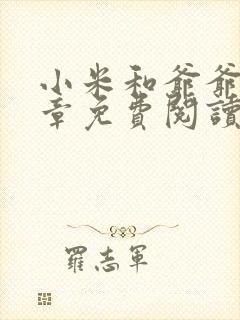 小米和爺爺
章免費閱讀
羅志軍